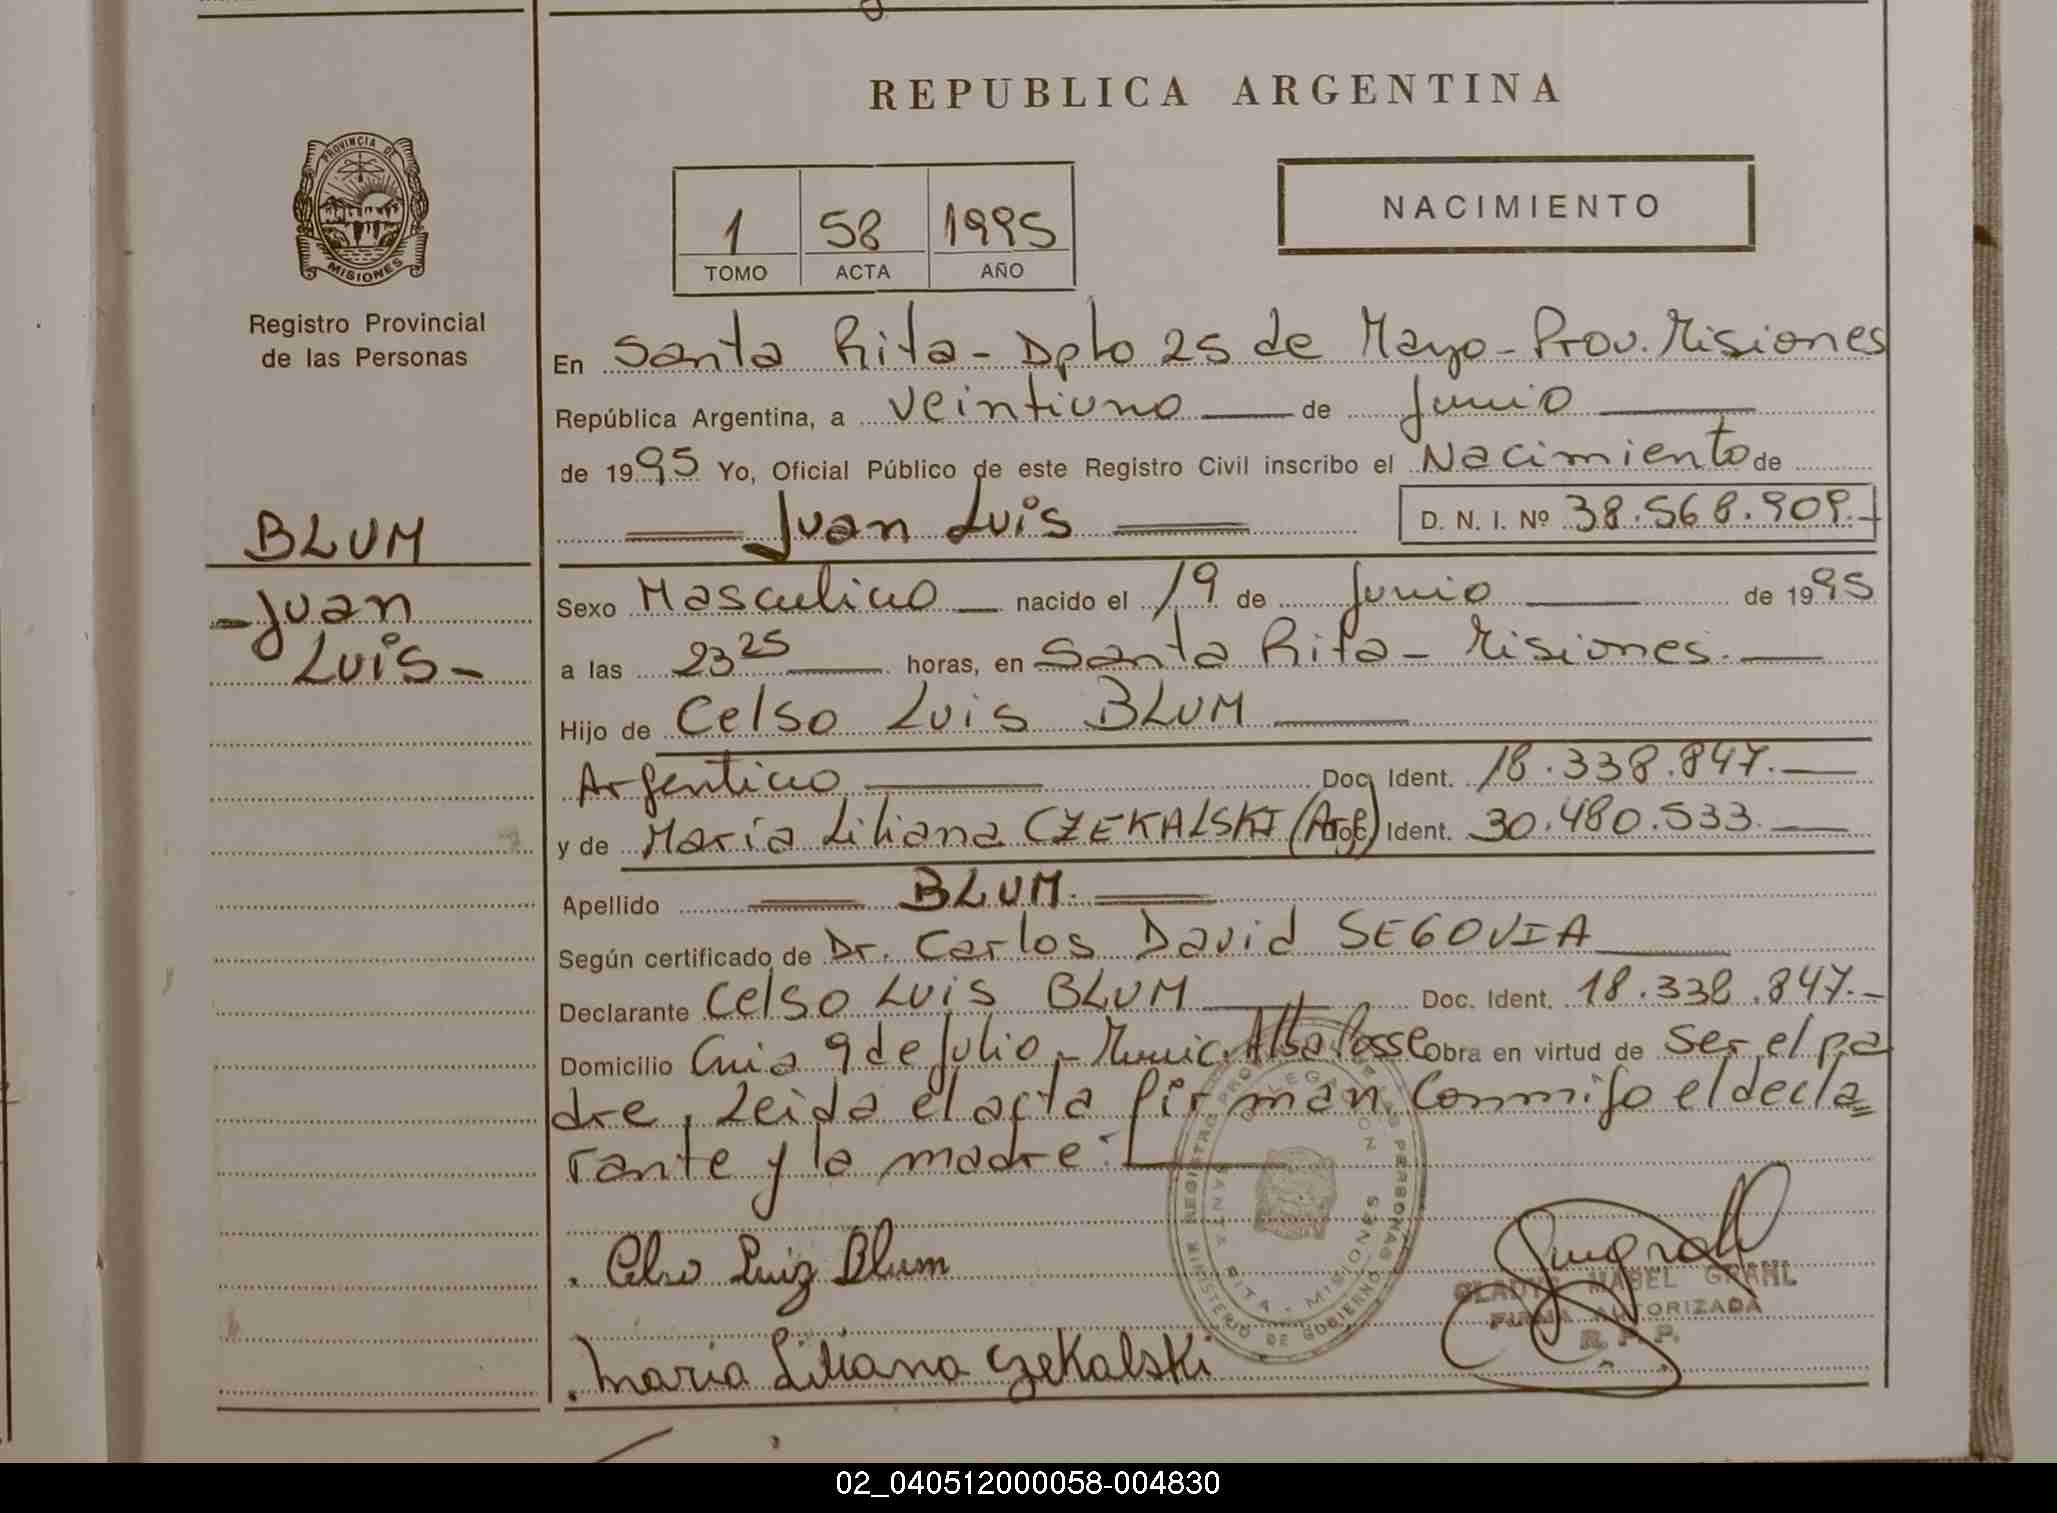 REPUBLICA ARGENTINA
PROVINCIA DE
MISIONES
Registro Provincial
de las Personas
1 58 1995
TOMO ACTA AÑO
NACIMIENTO
En Santa Rita - Dpto 25 de Mayo - Prov. Misiones
República Argentina, a veintiuno de Junio
de 1995 Yo, Oficial Público de este Registro Civil inscribo el Nacimiento de
Juan Luis D. N. I. Nº 38.568.909.-
BLUM
- Juan
Luis -
Sexo Masculino nacido el 19 de Junio de 1995
a las 23 25 horas, en Santa Rita - Misiones.
Hijo de Celso Luis BLUM
Argentino Doc. Ident. 18.338.847.
y de María Liliana CZEKALSKI (Arg.) Ident. 30.480.533.
Apellido BLUM.
Según certificado de Dr. Carlos David SEGOVIA
Declarante Celso Luis BLUM Doc. Ident. 18.338.847.-
Domicilio Cnia 9 de Julio - Munic. Alba Posse Obra en virtud de ser el pa
dre, Leida el acta firman Conmigo el decla=
rante y la madre.
MINISTERIO DE GOBIERNO
DELEGACION
SANTA RITA - MISIONES
Celso Luiz Blum
Maria Liliana Czekalski
GLADYS MABEL GRAHL
FIRMA AUTORIZADA
R. P. P.
02_040512000058-004830